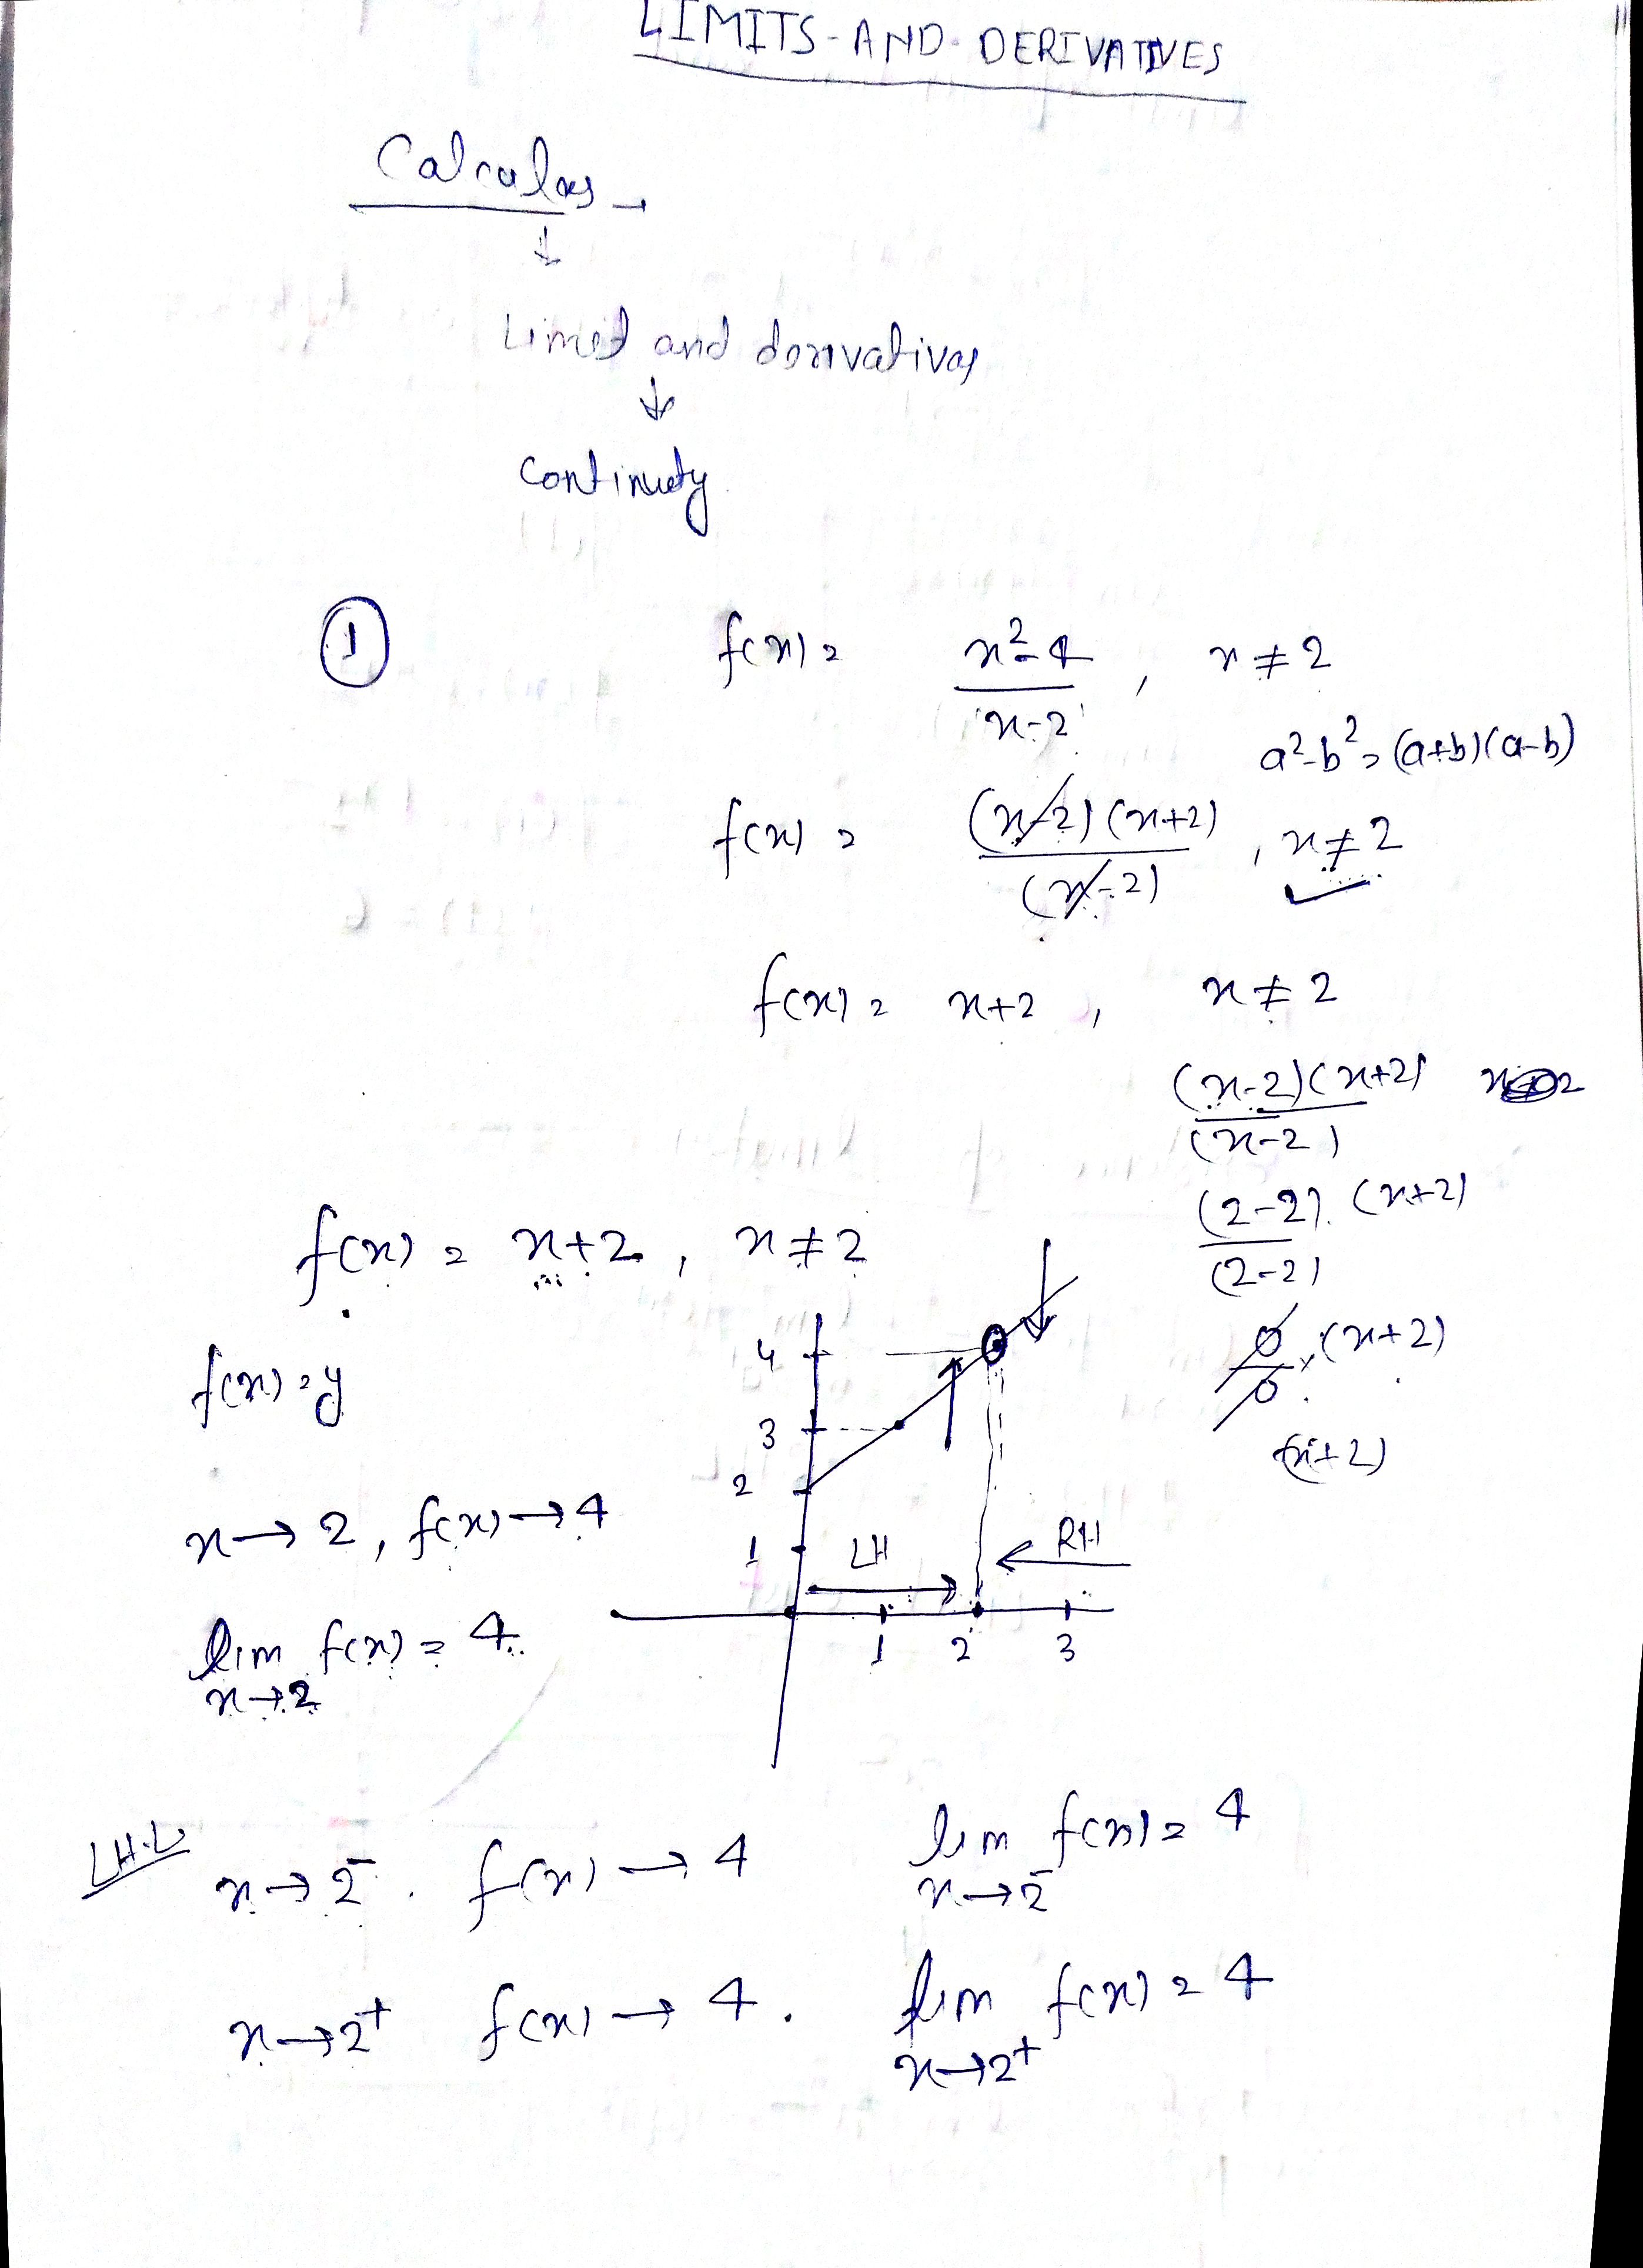 LIMITS-AND-DERIVATIVES
Calculas →
↓
Limit and derivatives
↓
Continuty
① f(x) = x²-4 / x-2 , x ≠ 2
a²-b² = (a+b)(a-b)
f(x) = (x-2)(x+2) / (x-2) , x ≠ 2
f(x) = x+2 , x ≠ 2
(x-2)(x+2) / (x-2)
(2-2).(x+2) / (2-2)
0/0 × (x+2)
(x+2)
f(x) = x+2 , x ≠ 2
f(x) = y
x → 2 , f(x) → 4
lim x→2 f(x) = 4
4
3
2
1
LH
RH
1 2 3
LH.L
x → 2⁻ . f(x) → 4 lim x→2⁻ f(x) = 4
x → 2⁺ f(x) → 4 . lim x→2⁺ f(x) = 4